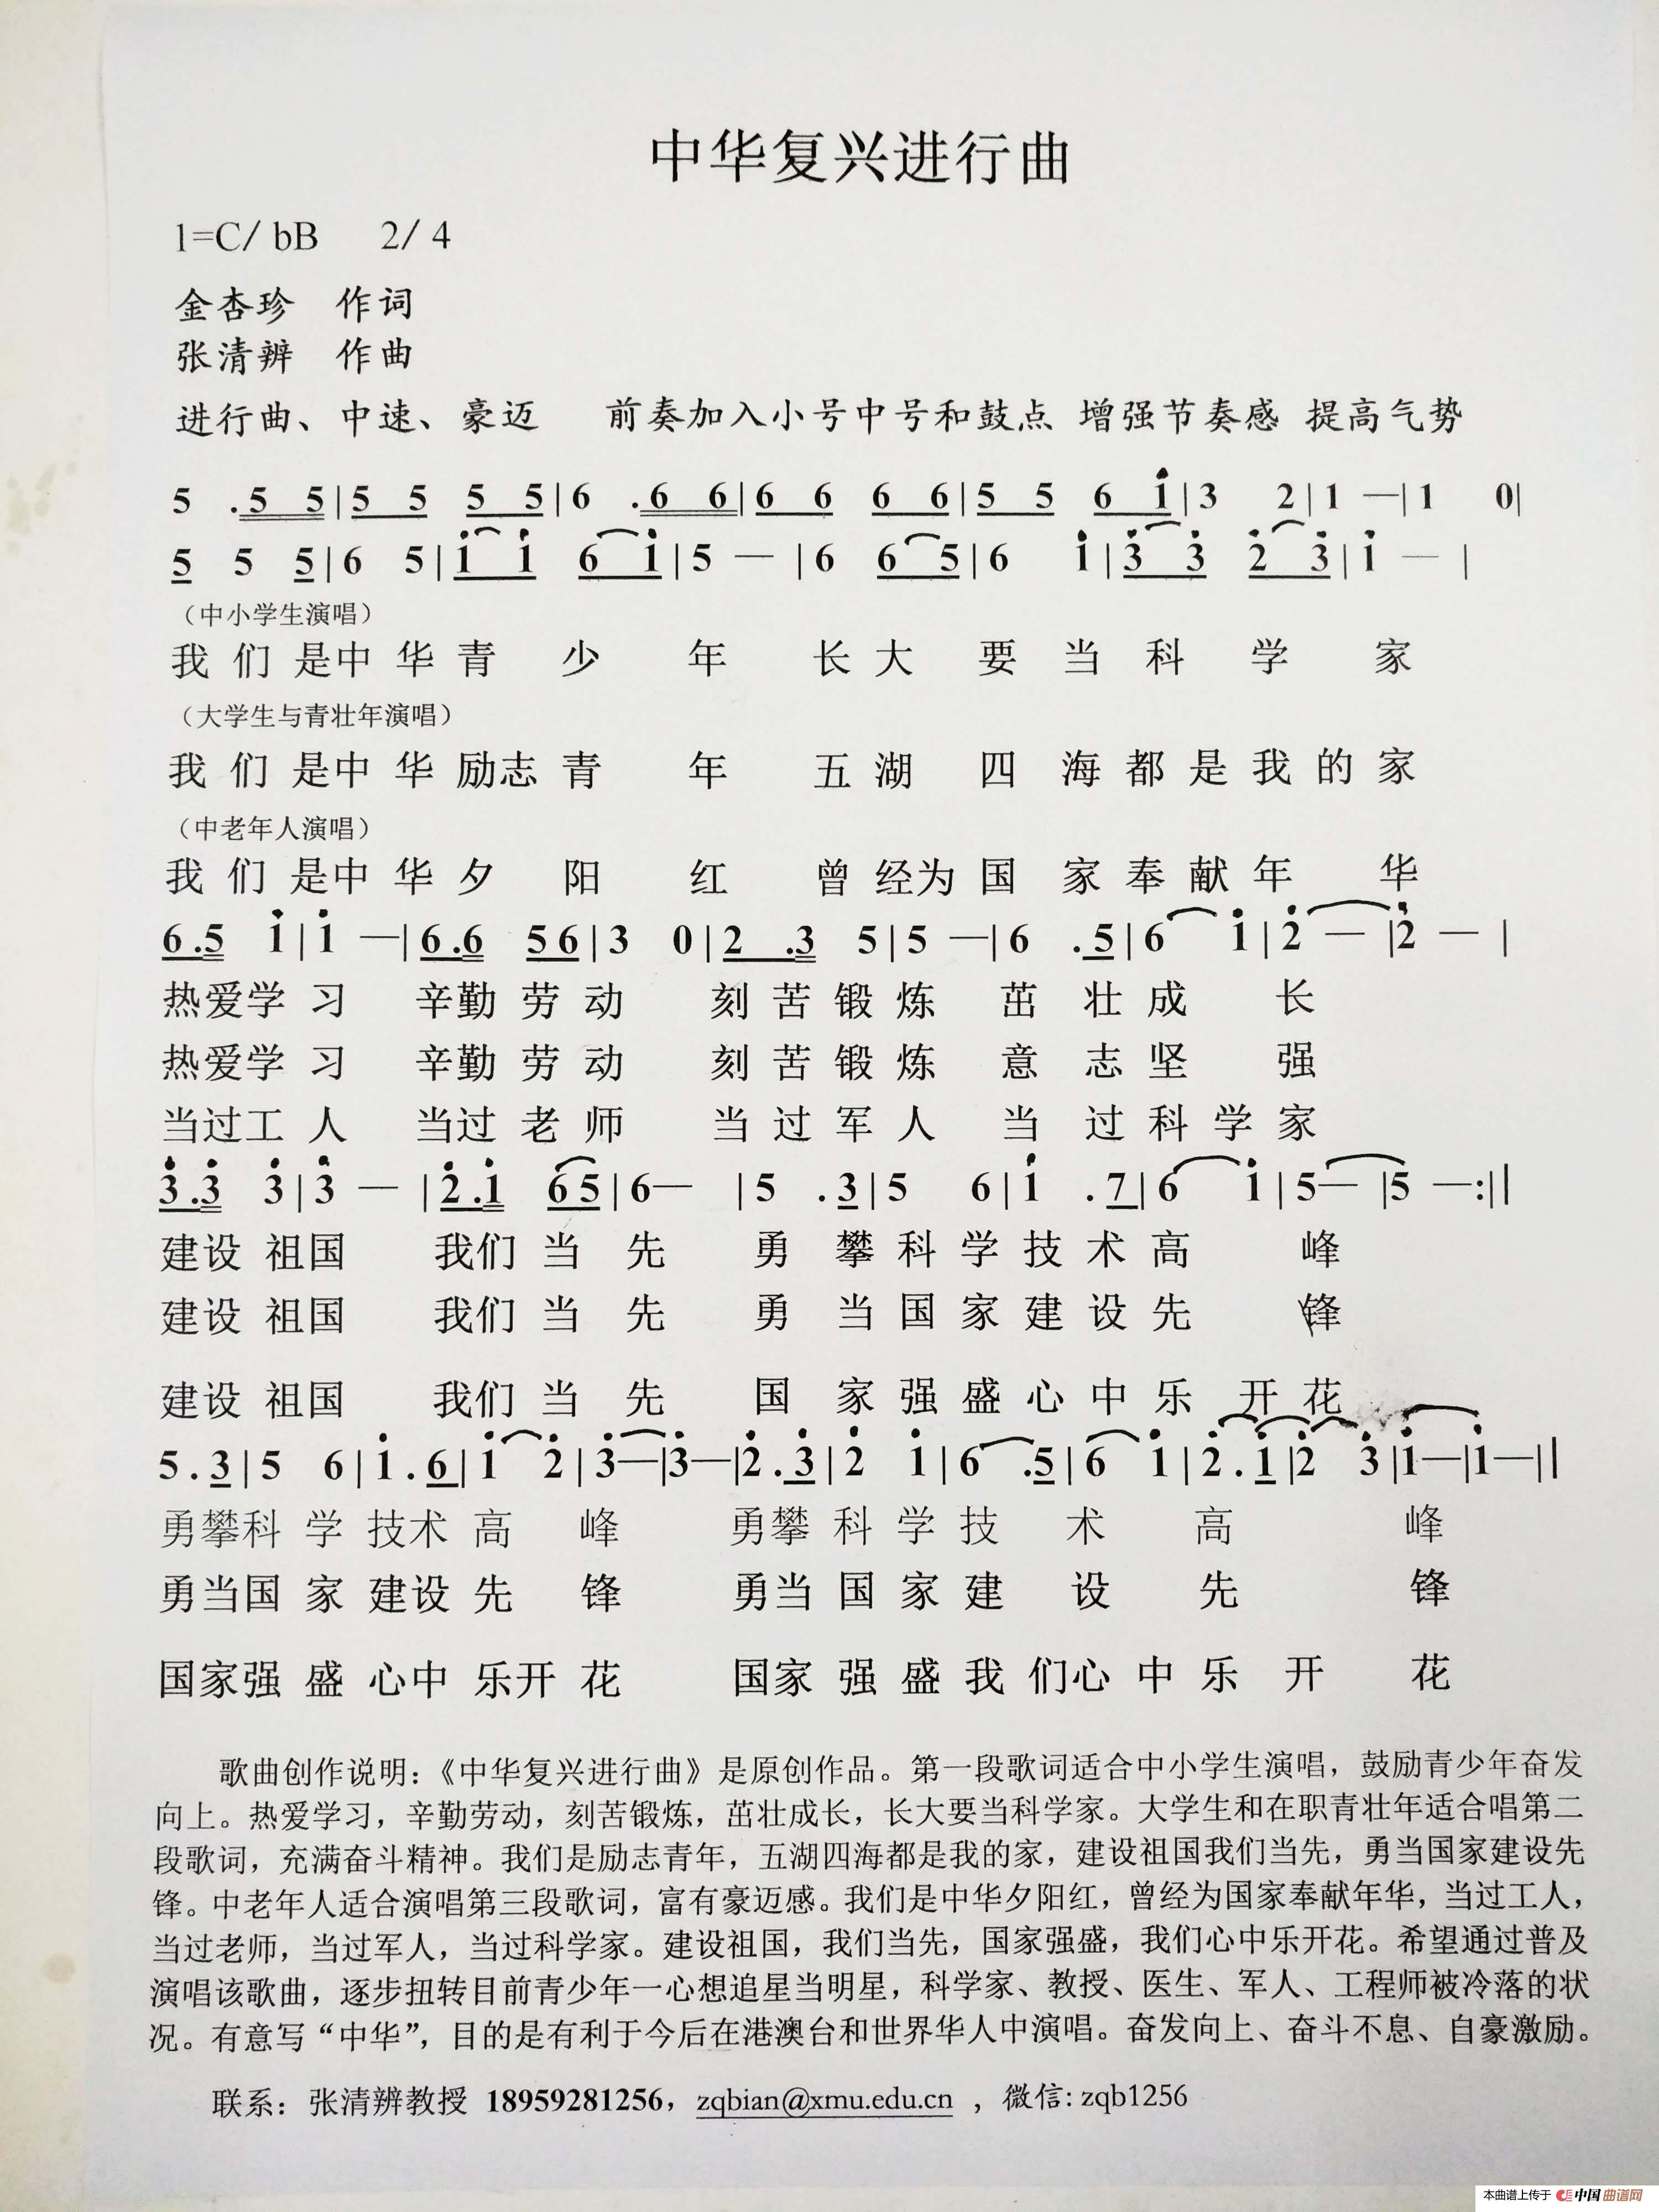 中华复兴进行曲
1=C/ bB 2/ 4
金杏珍 作词
张清辨 作曲
进行曲、中速、豪迈 前奏加入小号中号和鼓点 增强节奏感 提高气势
5 .5 5|5 5 5 5|6 .6 6|6 6 6 6|5 5 6 1|3 2|1 —|1 0|
5 5 5|6 5|1 1 6 1|5 — |6 6 5|6 1|3 3 2 3|1 — |
（中小学生演唱）
我 们 是中 华 青 少 年 长 大 要 当 科 学 家
（大学生与青壮年演唱）
我 们 是中 华 励志 青 年 五 湖 四 海 都 是 我 的 家
（中老年人演唱）
我 们 是中 华 夕 阳 红 曾 经为 国 家 奉 献 年 华
6.5 1|1 —|6.6 56|3 0|2 .3 5|5 —|6 .5|6 1|2 — |2 — |
热爱学 习 辛勤 劳 动 刻 苦 锻 炼 茁 壮 成 长
热爱学 习 辛勤 劳 动 刻 苦 锻 炼 意 志 坚 强
当过工 人 当过 老 师 当 过 军 人 当 过 科 学 家
3.3 3|3 — |2.1 65|6— |5 .3|5 6|1 .7|6 1|5— |5 —:||
建设 祖国 我们 当 先 勇 攀 科 学 技 术 高 峰
建设 祖国 我们 当 先 勇 当 国 家 建 设 先 锋
建设 祖国 我们 当 先 国 家 强 盛 心 中 乐 开 花
5.3|5 6|1.6|1 2|3—|3—|2.3|2 1|6 .5|6 1|2.1|2 3|1—|1—||
勇攀科 学 技术 高 峰 勇攀 科 学 技 术 高 峰
勇当国 家 建设 先 锋 勇当 国 家 建 设 先 锋
国家强 盛 心中 乐开 花 国家 强 盛 我 们心 中 乐 开 花
歌曲创作说明：《中华复兴进行曲》是原创作品。第一段歌词适合中小学生演唱，鼓励青少年奋发
向上。热爱学习，辛勤劳动，刻苦锻炼，茁壮成长，长大要当科学家。大学生和在职青壮年适合唱第二
段歌词，充满奋斗精神。我们是励志青年，五湖四海都是我的家，建设祖国我们当先，勇当国家建设先
锋。中老年人适合演唱第三段歌词，富有豪迈感。我们是中华夕阳红，曾经为国家奉献年华，当过工人，
当过老师，当过军人，当过科学家。建设祖国，我们当先，国家强盛，我们心中乐开花。希望通过普及
演唱该歌曲，逐步扭转目前青少年一心想追星当明星，科学家、教授、医生、军人、工程师被冷落的状
况。有意写“中华”，目的是有利于今后在港澳台和世界华人中演唱。奋发向上、奋斗不息、自豪激励。
联系：张清辨教授 18959281256，zqbian@xmu.edu.cn ，微信: zqb1256
本曲谱上传于 中国曲谱网